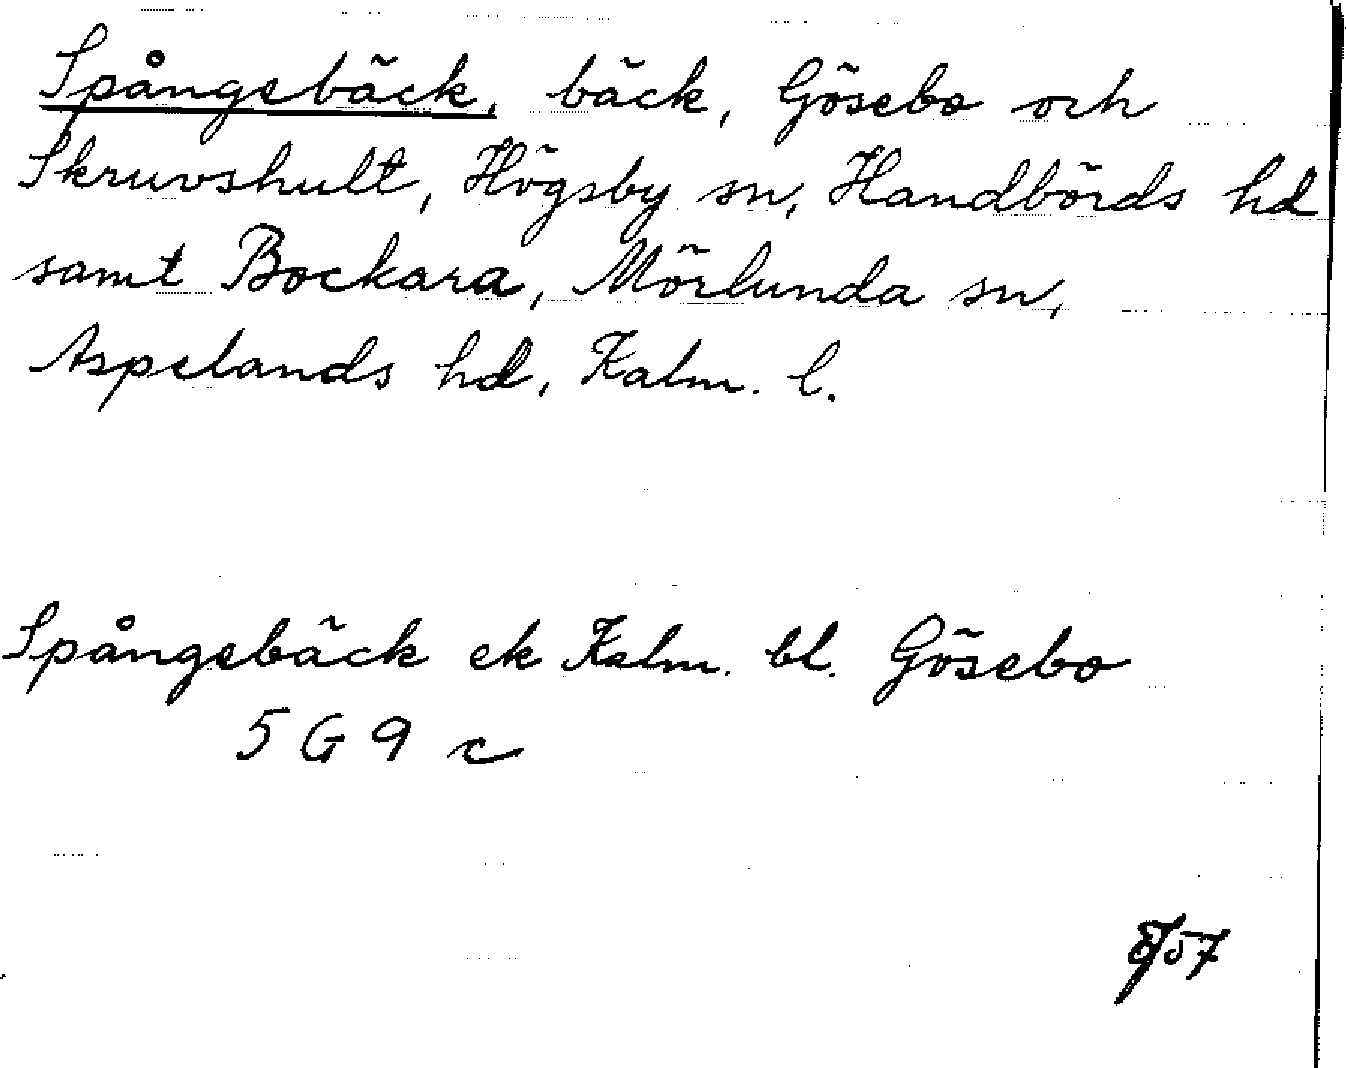 Spångebäck, bäck, Gösebo och
Skruvshult, Högsby sn, Handbörds hd
samt Bockara, Mörlunda sn,
Aspelands hd, Kalm. l.
Spångebäck ek Kalm. bl. Gösebo
5 G 9 c
57